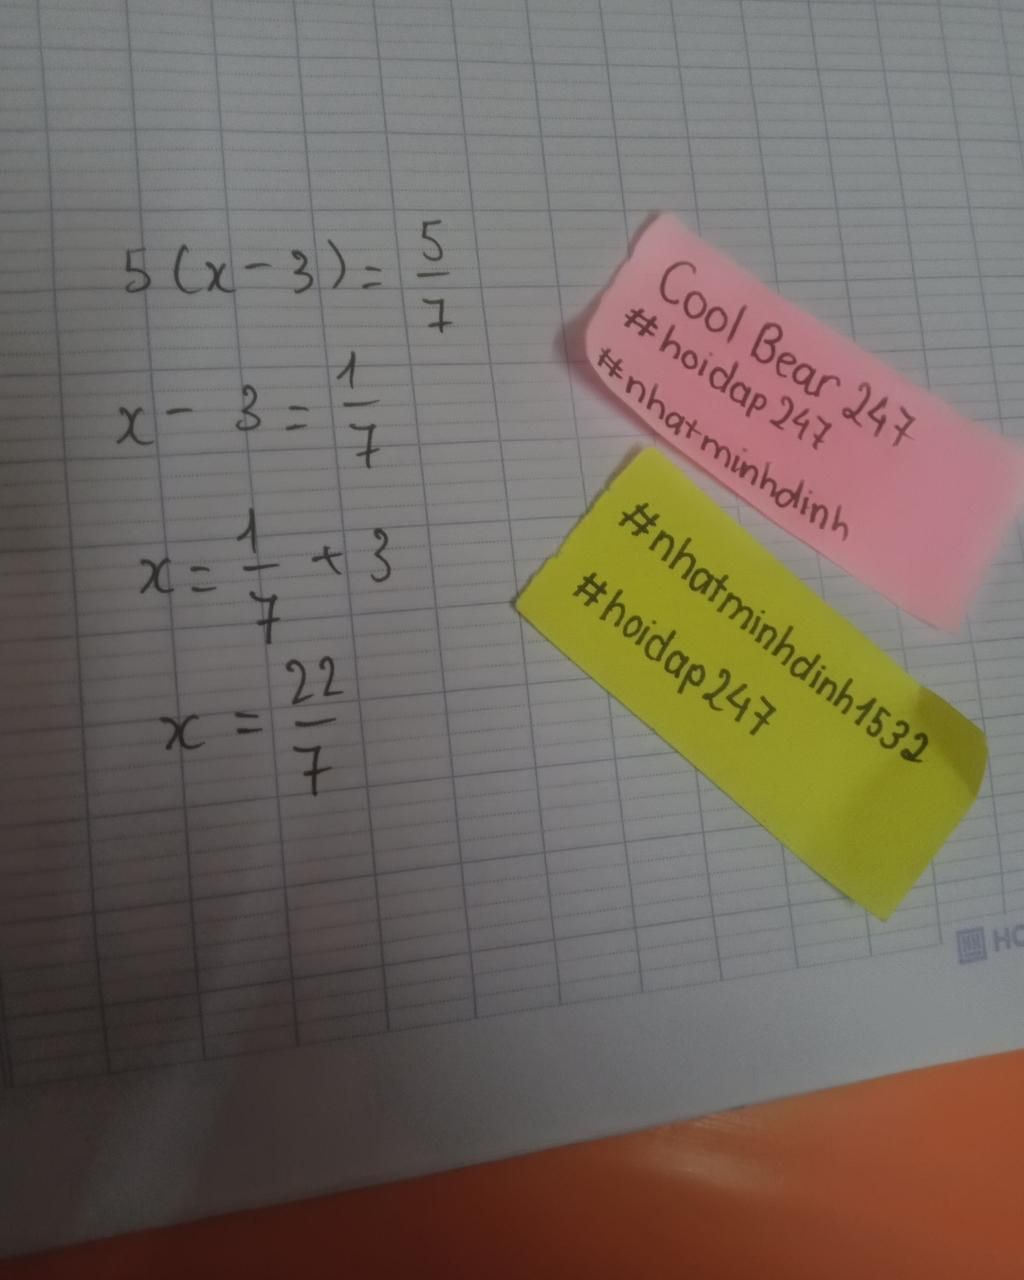 5(x-3) = 5/7
x - 3 = 1/7
x = 1/7 + 3
x = 22/7
Cool Bear 247
#hoidap 247
#nhatminhdinh
#nhatminhdinh1532
#hoidap247